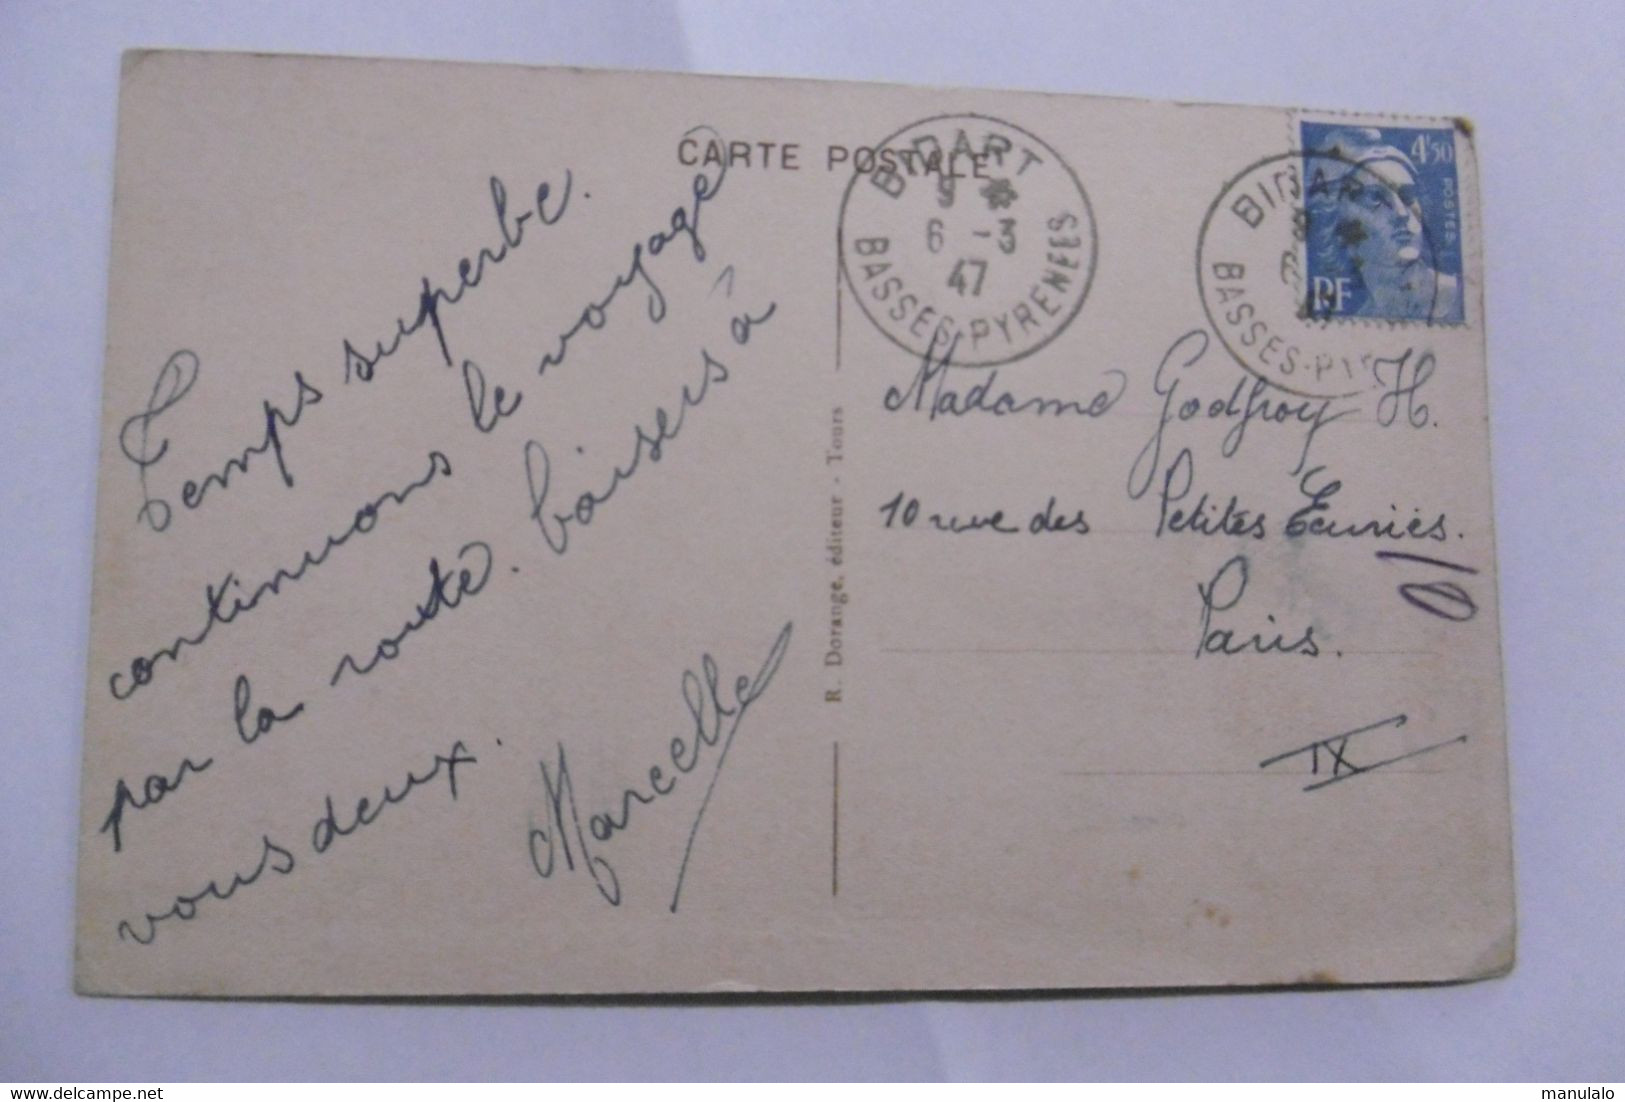 CARTE POSTALE
Temps superbe.
continuons le voyage
par la route. baisers à
vous deux.
Marcelle
R. Dorange, éditeur - Tours
BIDART
9 *
6 - 3
47
BASSES-PYRENEES
BIDART
BASSES-PY
4F50
POSTES
RF
Madame Godfroy H.
10 rue des Petites Ecuries.
Paris.
IX
delcampe.net
manulalo